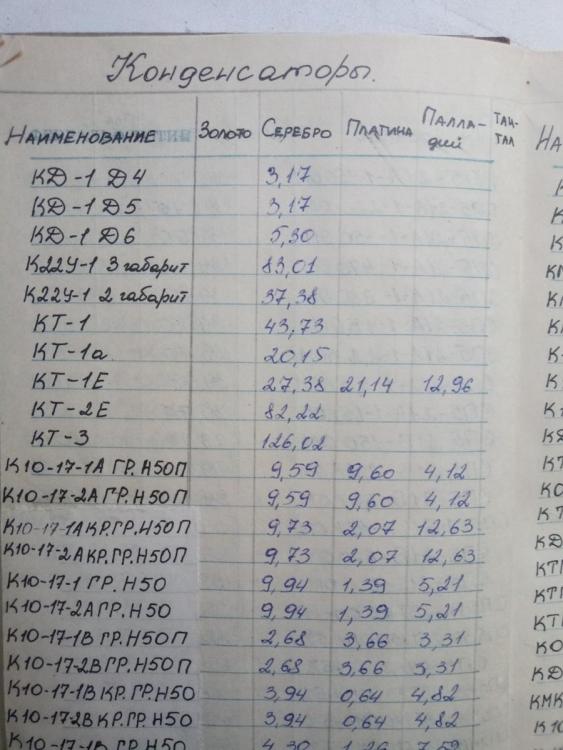 Конденсаторы.
Наименование Золото Серебро Платина Палладий Тантал На
КД-1 Д4 3,17
КД-1 Д5 3,17
КД-1 Д6 5,30
К22У-1 3 габарит 83,01
К22У-1 2 габарит 37,38
КТ-1 43,73
КТ-1а 20,15
КТ-1Е 27,38 21,14 12,96
КТ-2Е 82,22
КТ-3 126,02
К10-17-1А ГР.Н50П 9,59 9,60 4,12
К10-17-2А ГР.Н50П 9,59 9,60 4,12
К10-17-1А КР.ГР.Н50П 9,73 2,07 12,63
К10-17-2А КР.ГР.Н50П 9,73 2,07 12,63
К10-17-1 ГР.Н50 9,94 1,39 5,21
К10-17-2А ГР.Н50 9,94 1,39 5,21
К10-17-1В ГР.Н50П 2,68 3,66 3,31
К10-17-2В ГР.Н50П 2,68 3,66 3,31
К10-17-1В КР.ГР.Н50 3,94 0,64 4,82
К10-17-2В КР.ГР.Н50 3,94 0,64 4,82
К10-17-1В ГР.Н50 4,30 1,26 7,59